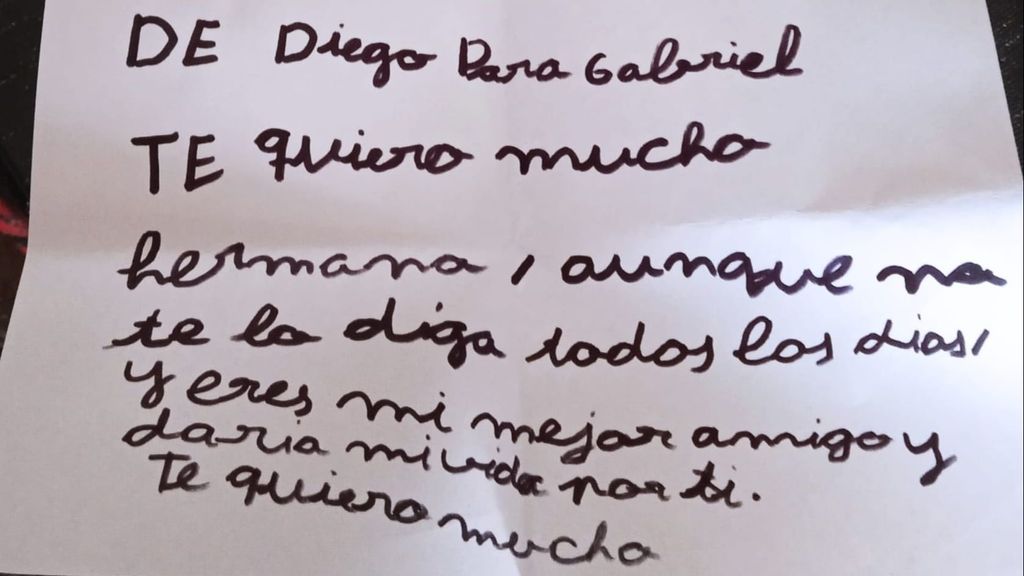 DE Diego Para Gabriel
TE quiero mucho
hermano, aunque no
te lo diga todos los dias,
y eres mi mejor amigo y
daria mi vida por ti.
Te quiero mucho